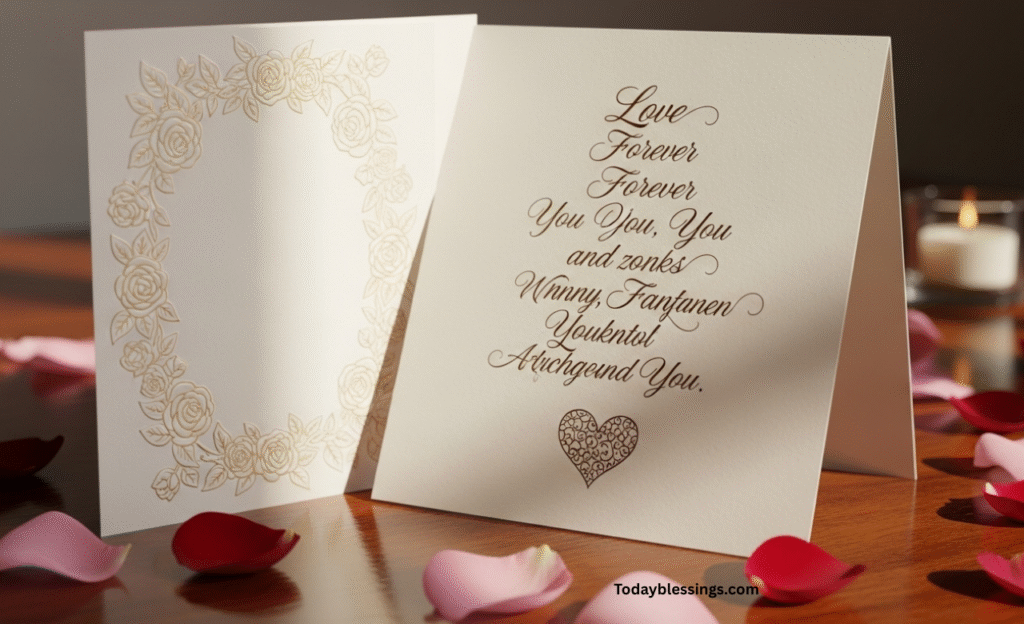 Love
Forever
Forever
You You, You
and zonks
Wnnny, Fanfanen
Youkntol
Atrchgeund You.
Todayblessings.com